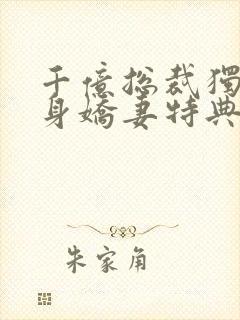 千億総裁獨
身嬌妻特典
朱家角